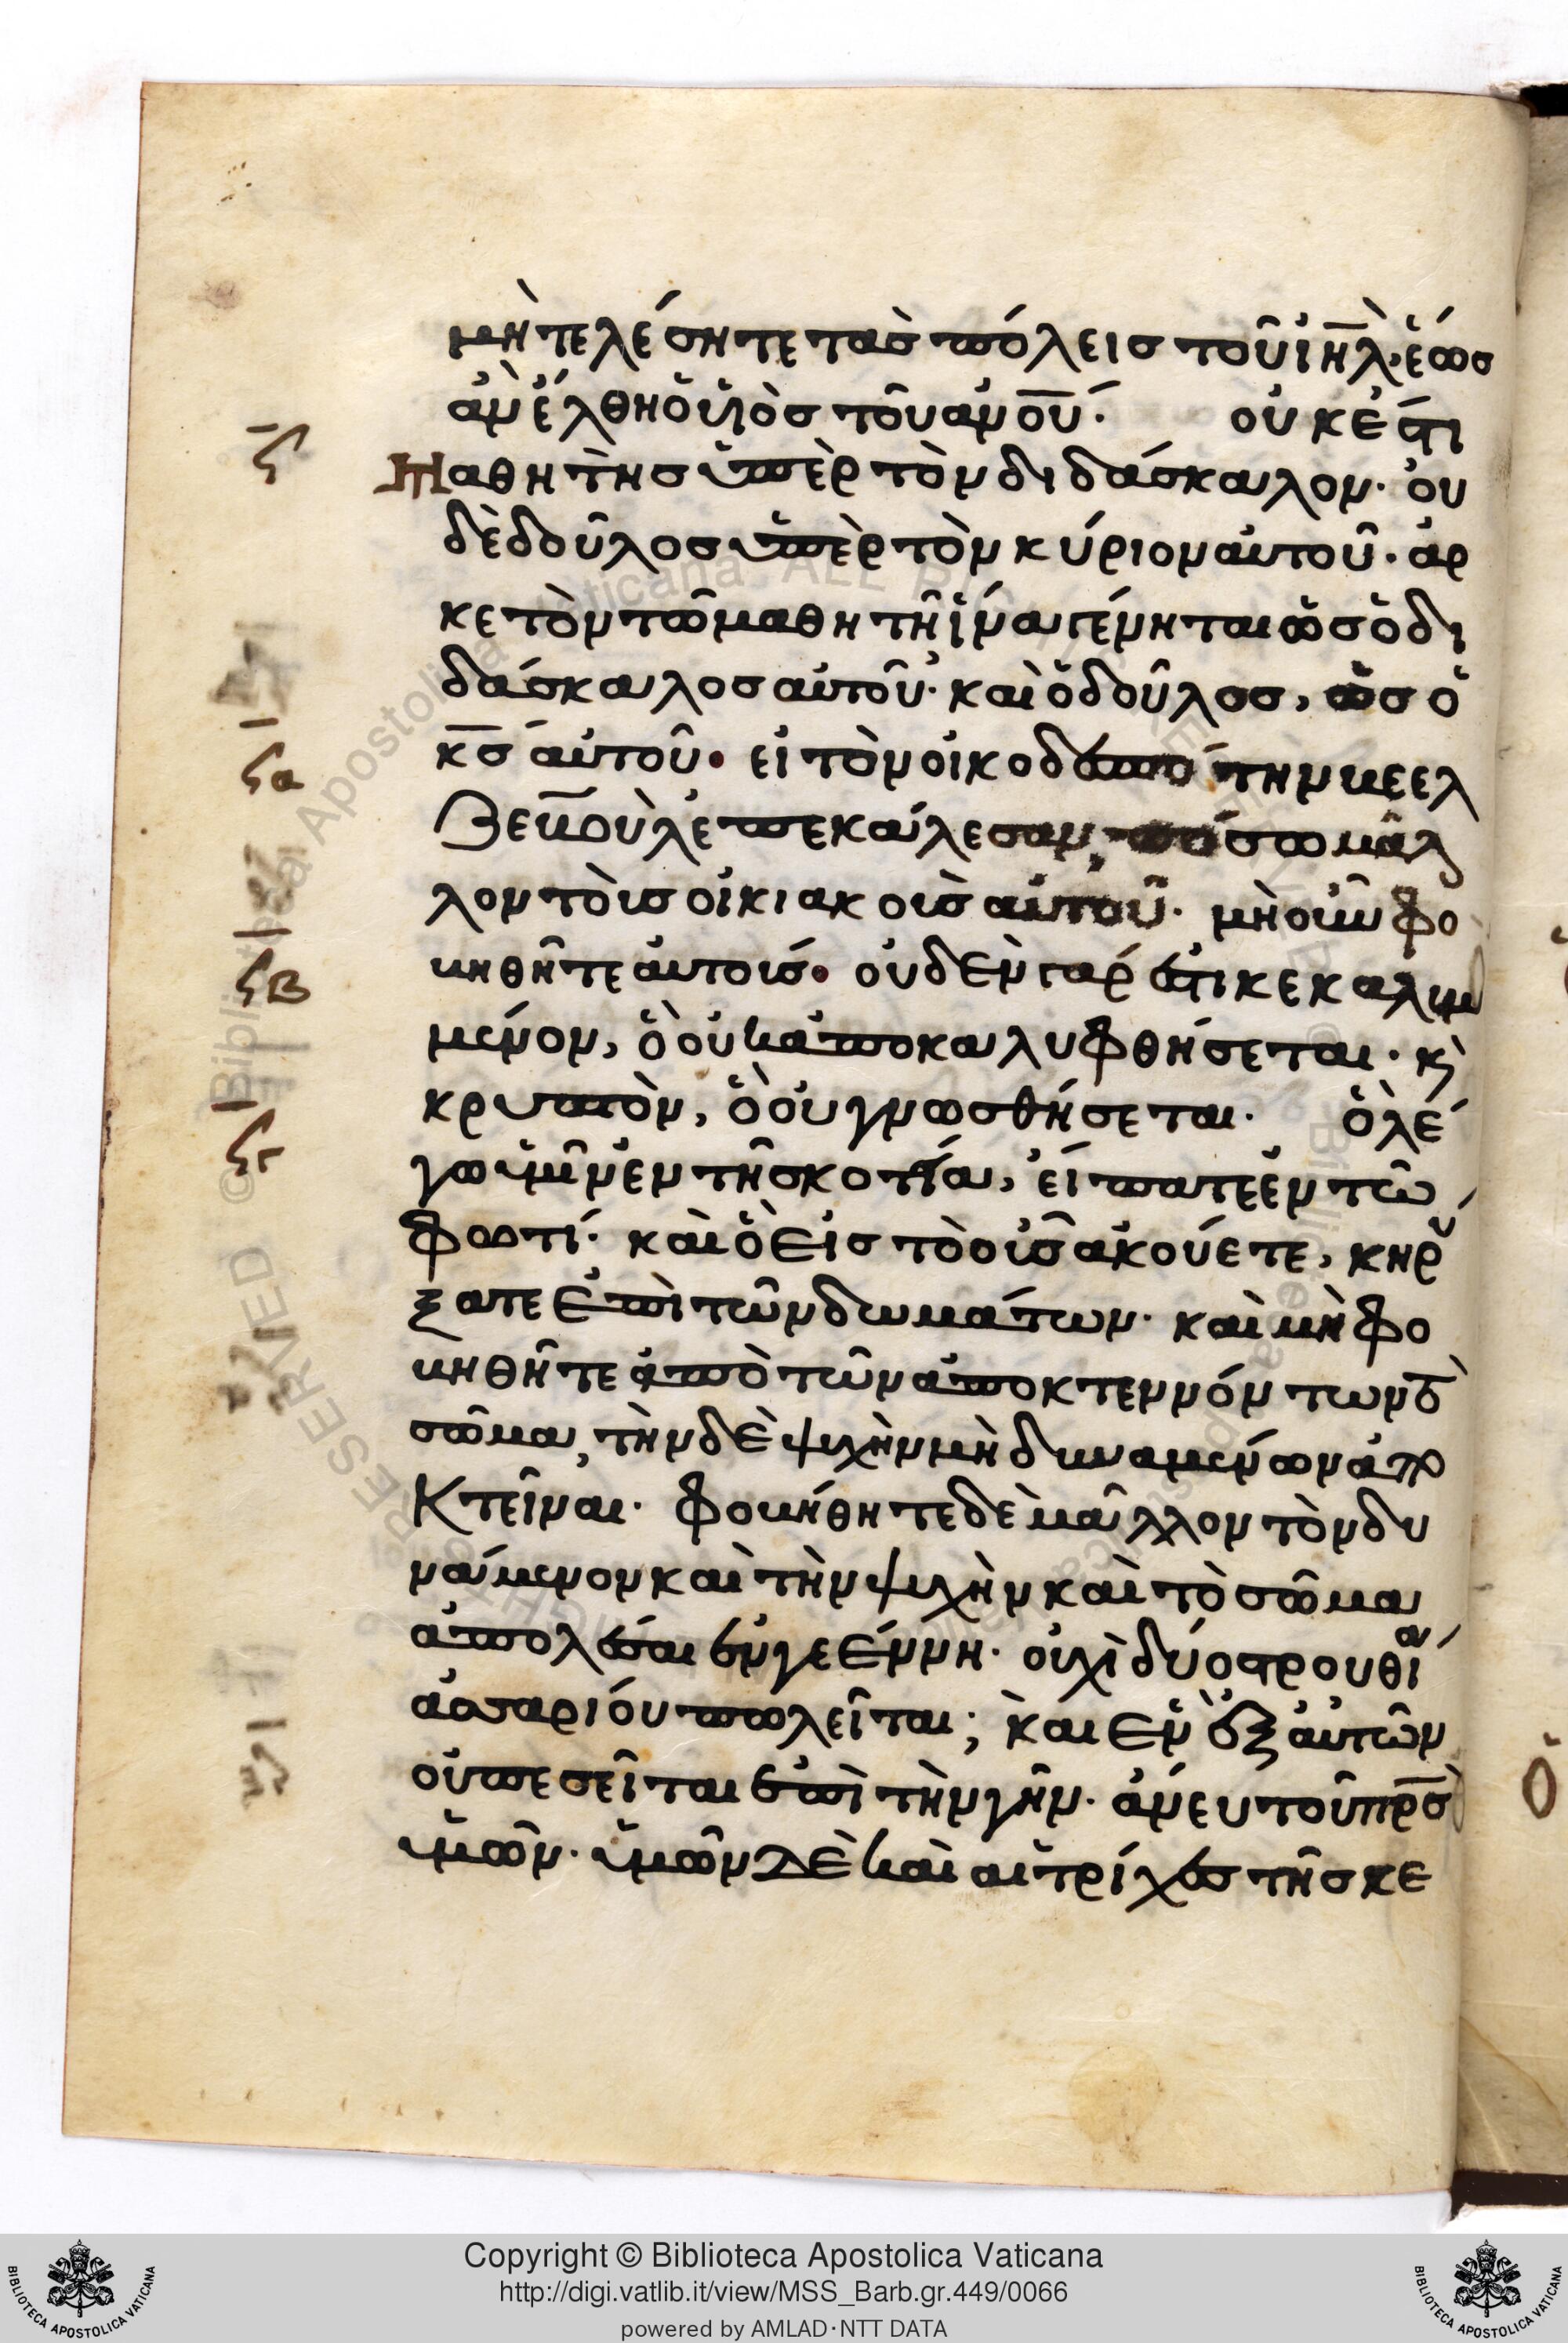 μὴ τελέσητε τὰς πόλεις τοῦ ἰηλ̅· ἕως
ἂν ἔλθη ὁ υἱὸς τοῦ ἀνου̅. οὐκ ἔστι
ϟ
μαθητὴς ὑπὲρ τὸν διδάσκαλον· οὐ
δὲ δοῦλος ὑπὲρ τὸν κύριον αὐτοῦ· ἀρ
κετὸν τῶ μαθητῆ ἵνα γένηται ὡς ὁ δι
δάσκαλος αὐτοῦ· καὶ ὁ δοῦλος, ὡς ὁ
κ̅ς̅ αὐτοῦ· εἰ τὸν οἰκοδεσπότην βεελ
ϟα
ζεβοὺλ ἐπεκάλεσαν, πόσω μᾶλ
λον τοὺς οἰκιακοὺς αὐτοῦ· μὴ οὖν φο
βηθῆτε αὐτούς· οὐδὲν γάρ ἐστι κεκαλυμ
ϟβ
μένον, ὃ οὐκ ἀποκαλυφθήσεται· κ
κρυπτὸν, ὃ οὐ γνωσθήσεται. ὃ λέ
γω ὑμῖν ἐν τῆ σκοτία, εἴπατε ἐν τῶ
ϟγ
φωτί· καὶ ὃ εἰς τὸ οὖς ἀκούετε, κηρύ
ξατε ἐπὶ τῶν δωμάτων· καὶ μὴ φο
βηθῆτε ἀπὸ τῶν ἀποκτεννόντων τὸ
σῶμα, τὴν δὲ ψυχὴν μὴ δυναμένων ἀπο
κτεῖναι· φοβήθητε δὲ μᾶλλον τὸν δυ
νάμενον καὶ τὴν ψυχὴν καὶ τὸ σῶμα
ἀπολέσαι ἐν γεέννη· οὐχὶ δύο στρουθία
ἀσσαρίου πωλεῖται; καὶ ἓν ἐξ αὐτῶν
οὐ πεσεῖται ἐπὶ τὴν γῆν· ἄνευ τοῦ πρ̅ς̅
ὑμῶν· ὑμῶν δὲ καὶ αἱ τρίχες τῆς κε
Copyright © Biblioteca Apostolica Vaticana
http://digi.vatlib.it/view/MSS_Barb.gr.449/0066
powered by AMLAD·NTT DATA